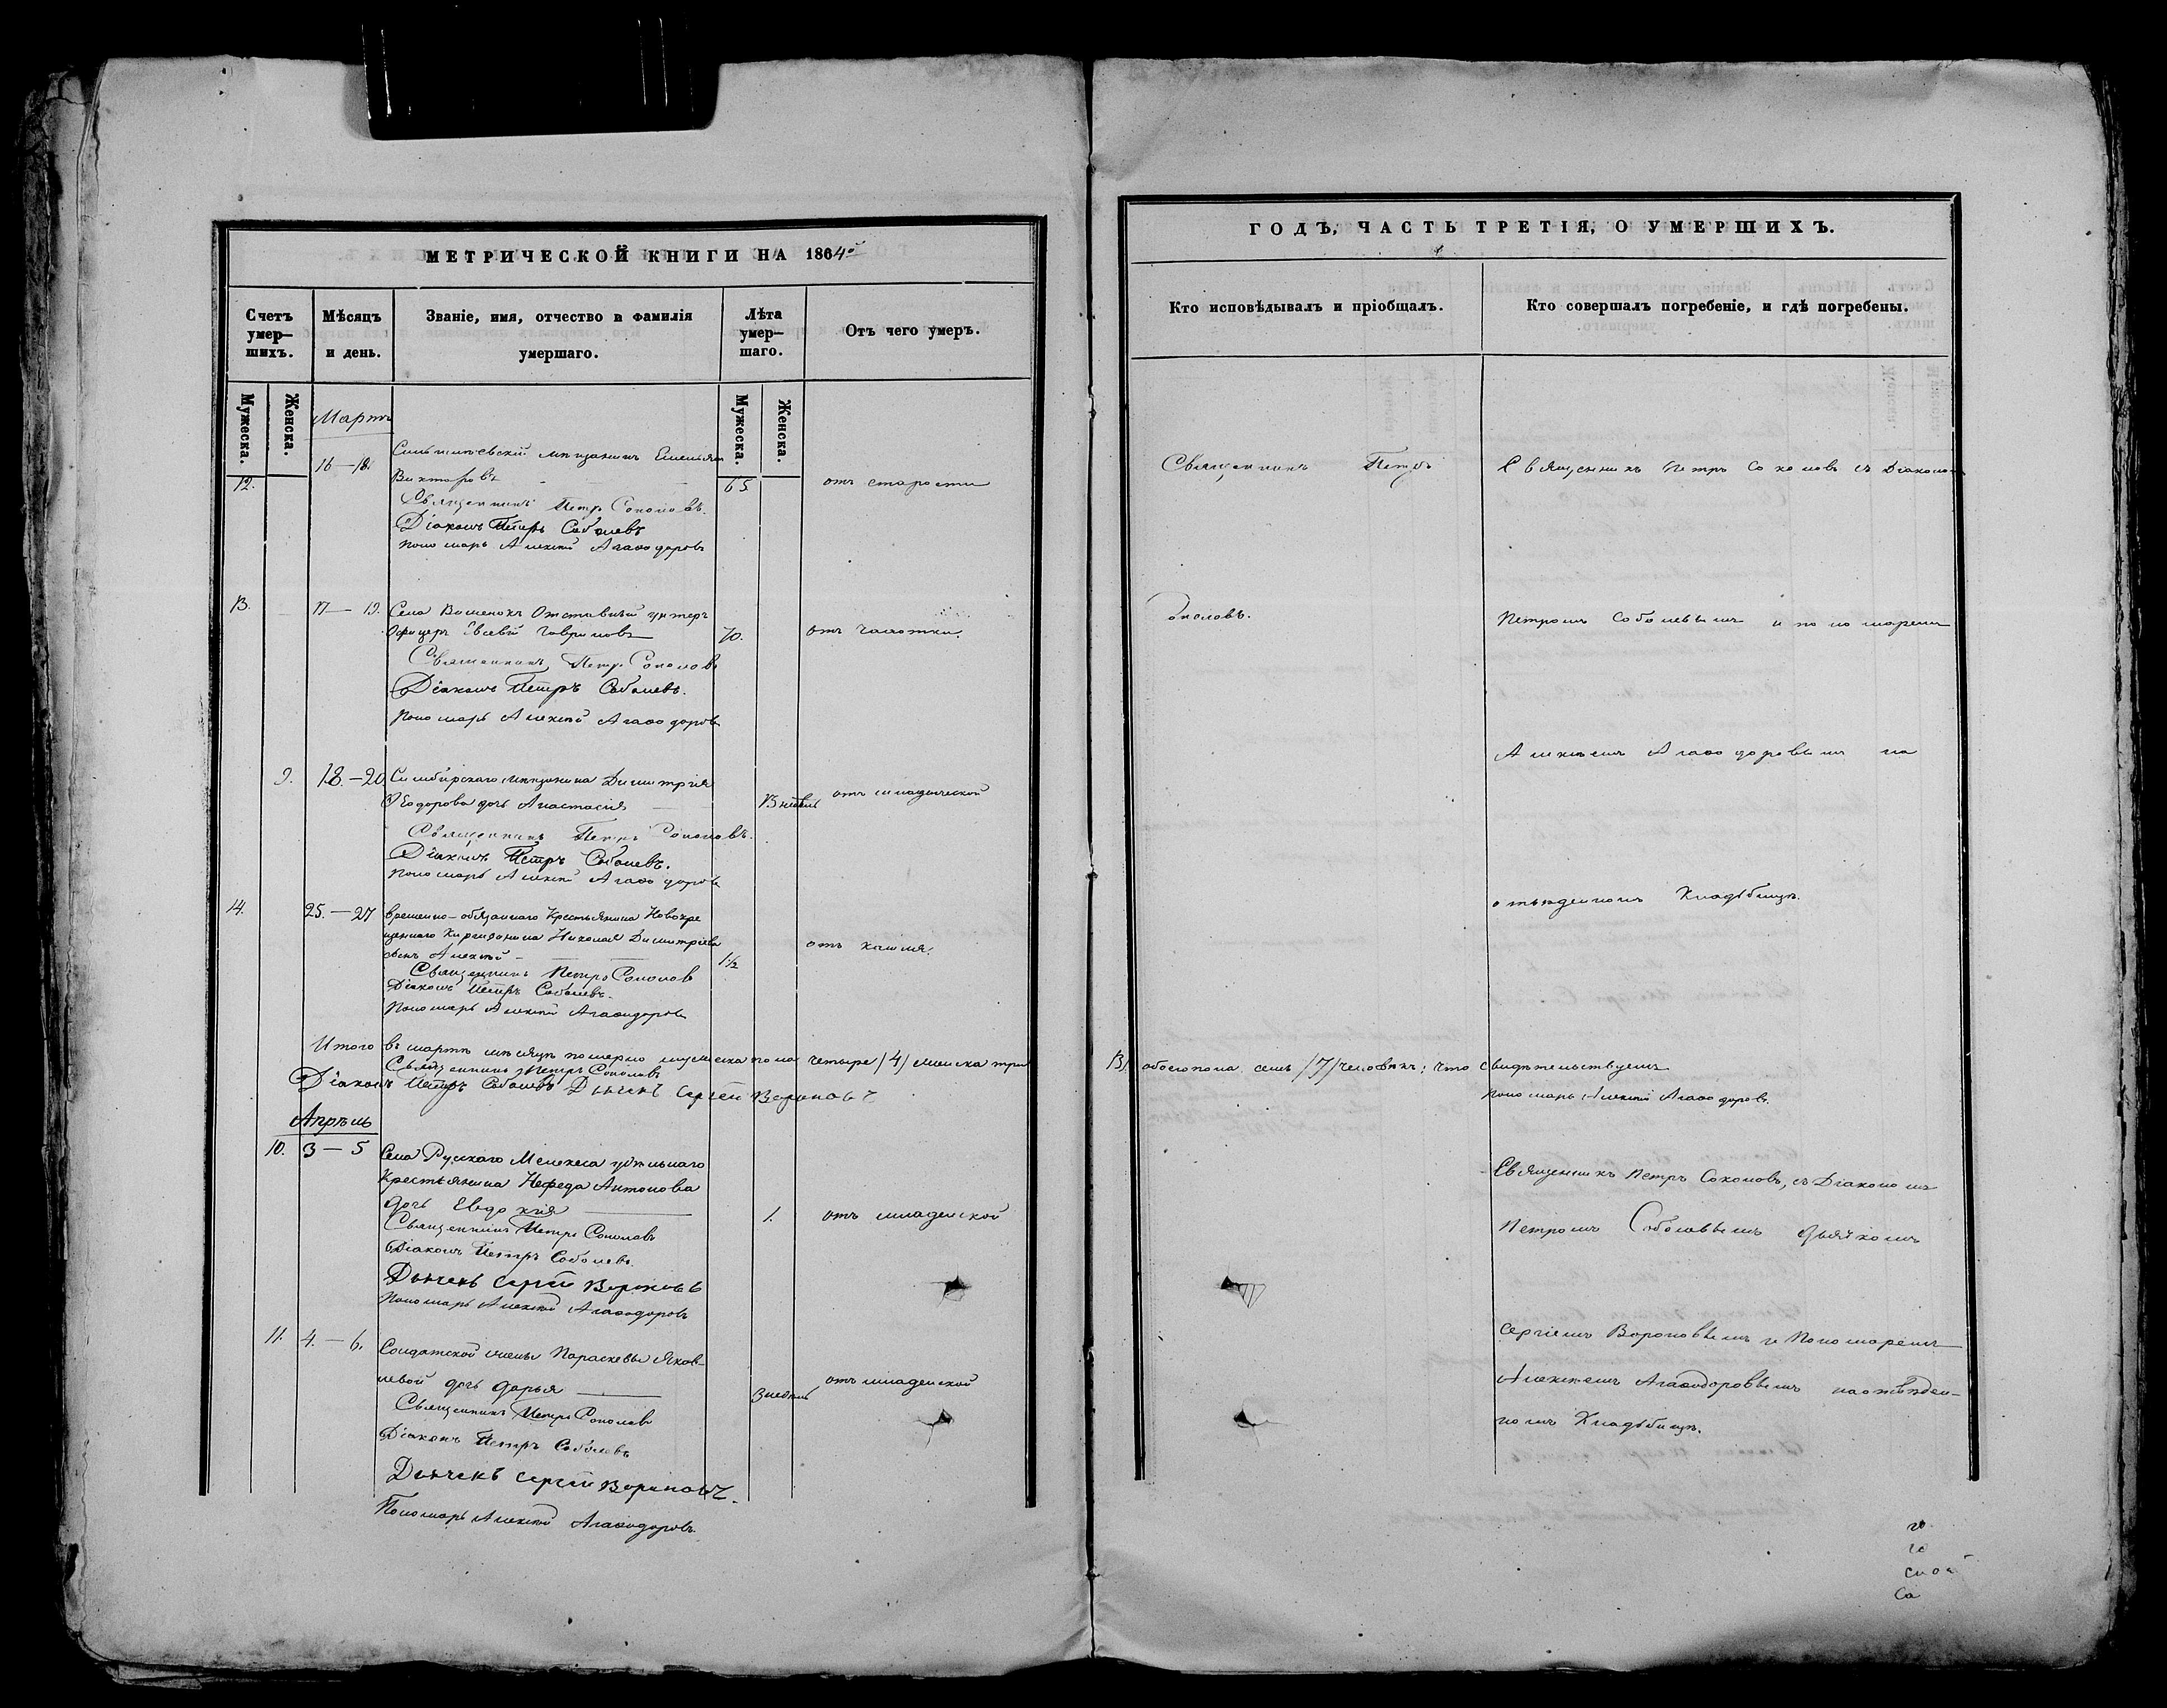 МЕТРИЧЕСКОЙ КНИГИ НА 1864й
Счетъ умер—шихъ.
Мѣсяцъ и день.
Званіе, имя, отчество и фамилія умершаго.
Лѣта умер—шаго.
Отъ чего умеръ.
Мужеска.
Женска.
Мужеска.
Женска.
Мартъ
16—18. мѣщанинъ Емельянъ
12. Викторовъ 65. отъ старости
Священникъ Петръ Соколовъ.
Діаконъ Петръ Соболевъ
Пономарь Алексѣй Агаѳодоровъ
13. 17—19. Села Отставный унтеръ
Офицеръ Евсевій Гавриловъ 70. отъ чахотки.
Священникъ Петръ Соколовъ
Діаконъ Петръ Соболевъ.
Пономарь Алексѣй Агаѳодоровъ
9. 18.—20. Симбирскаго мѣщанина Димитрія
Ѳеодорова дочь Анастасія отъ младенческой
Священникъ Петръ Соколовъ.
Діаконъ Петръ Соболевъ.
Пономарь Алексѣй Агаѳодоровъ
14. 25.—27 Временно-обязаннаго Крестьянина Новокре
щеннаго Николая Димитріева
сынъ Алексѣй 1½ отъ кашля.
Священникъ Петръ Соколовъ
Діаконъ Петръ Соболевъ.
Пономарь Алексѣй Агаѳодоровъ
Итого въ мартѣ мѣсяцѣ померло мужеска пола четыре /4/ женска три
Священникъ Петръ Соколовъ
Діаконъ Петръ Соболевъ Дьячекъ Сергѣй Вороновъ
Апрѣль
10. 3—5 Села Русскаго Мелекеса удѣльнаго
Крестьянина Нефеда Антонова
дочь Евдокія 1. отъ младенской
Священникъ Петръ Соколовъ
Діаконъ Петръ Соболевъ.
Дьячекъ Сергѣй Вороновъ
Пономарь Алексѣй Агаѳодоровъ
11. 4.—6. Солдатской жены Параскевы Яков-
левой дочь Дарья 3 недѣль отъ младенской
Священникъ Петръ Соколовъ
Діаконъ Петръ Соболевъ
Дьячекъ Сергѣй Вороновъ.
Пономарь Алексѣй Агаѳодоровъ.
ГОДЪ, ЧАСТЬ ТРЕТІЯ, О УМЕРШИХЪ.
Кто исповѣдывалъ и пріобщалъ.
Кто совершалъ погребеніе, и гдѣ погребены.
Священникъ Петръ
Соколовъ.
Священникъ Петръ Соколовъ съ Діакономъ
Петромъ Соболевымъ и пономаремъ
Алексѣемъ Агаѳодоровымъ на
отведенномъ Кладбищѣ.
/3/ обоего пола семь /7/ человѣкъ: что свидѣтельствуемъ
Пономарь Алексѣй Агаѳодоровъ.
Священникъ Петръ Соколовъ, съ Діакономъ
Петромъ Соболевымъ дьячкомъ
Сергіемъ Вороновымъ и Пономаремъ
Алексѣемъ Агаѳодоровымъ на отведен-
номъ Кладбищѣ.